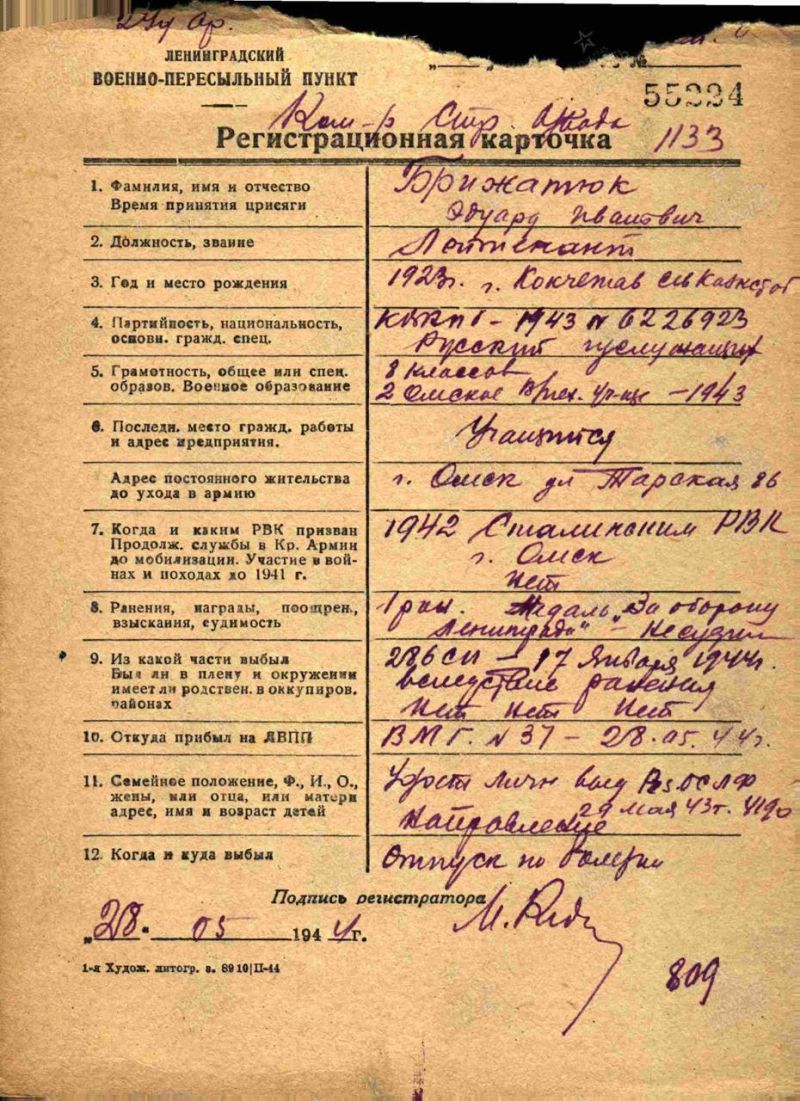 ЛЕНИНГРАДСКИЙ
ВОЕННО-ПЕРЕСЫЛЬНЫЙ ПУНКТ
№
55224
Ком-р Стр. взвода
Регистрационная карточка 1133
1. Фамилия, имя и отчество
Время принятия присяги
Брижатюк
Эдуард Иванович
2. Должность, звание
Лейтенант
3. Год и место рождения
1923г. г. Кокчетав
4. Партийность, национальность,
основн. гражд. спец.
1943 № 6226923
Русский
5. Грамотность, общее или спец.
образов. Военное образование
8 классов
2 Омское уч-ще - 1943
6. Последн. место гражд. работы
и адрес предприятия.
Учащийся
Адрес постоянного жительства
до ухода в армию
г. Омск ул Тарская 86
7. Когда и каким РВК призван
Продолж. службы в Кр. Армии
до мобилизации. Участие в вой-
нах и походах до 1941 г.
1942 Сталинским РВК
г. Омск
Нет
8. Ранения, награды, поощрен.,
взыскания, судимость
1 ран. Медаль „За оборону
Ленинграда" - Несудим
9. Из какой части выбыл
Был ли в плену и окружении
имеет ли родствен. в оккупиров.
районах
286 СП - 17 Января 1944г.
вследствие ранения
Нет Нет Нет
10. Откуда прибыл на ЛВПП
ВМГ. № 37 - 28.05.44г.
11. Семейное положение, Ф., И., О.,
жены, или отца, или матери
адрес, имя и возраст детей
Удост личн выд
29 мая 43г.
Направление
12. Когда и куда выбыл
Отпуск по болезни
Подпись регистратора
„28" 05 1944г.
1-я Худож. литогр. з. 6910|II-44
809